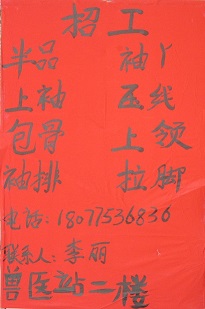 招工
半品 袖丫
上袖 压线
包骨 上领
袖排 拉脚
电话:18077536836
联系人:李丽
兽医站二楼